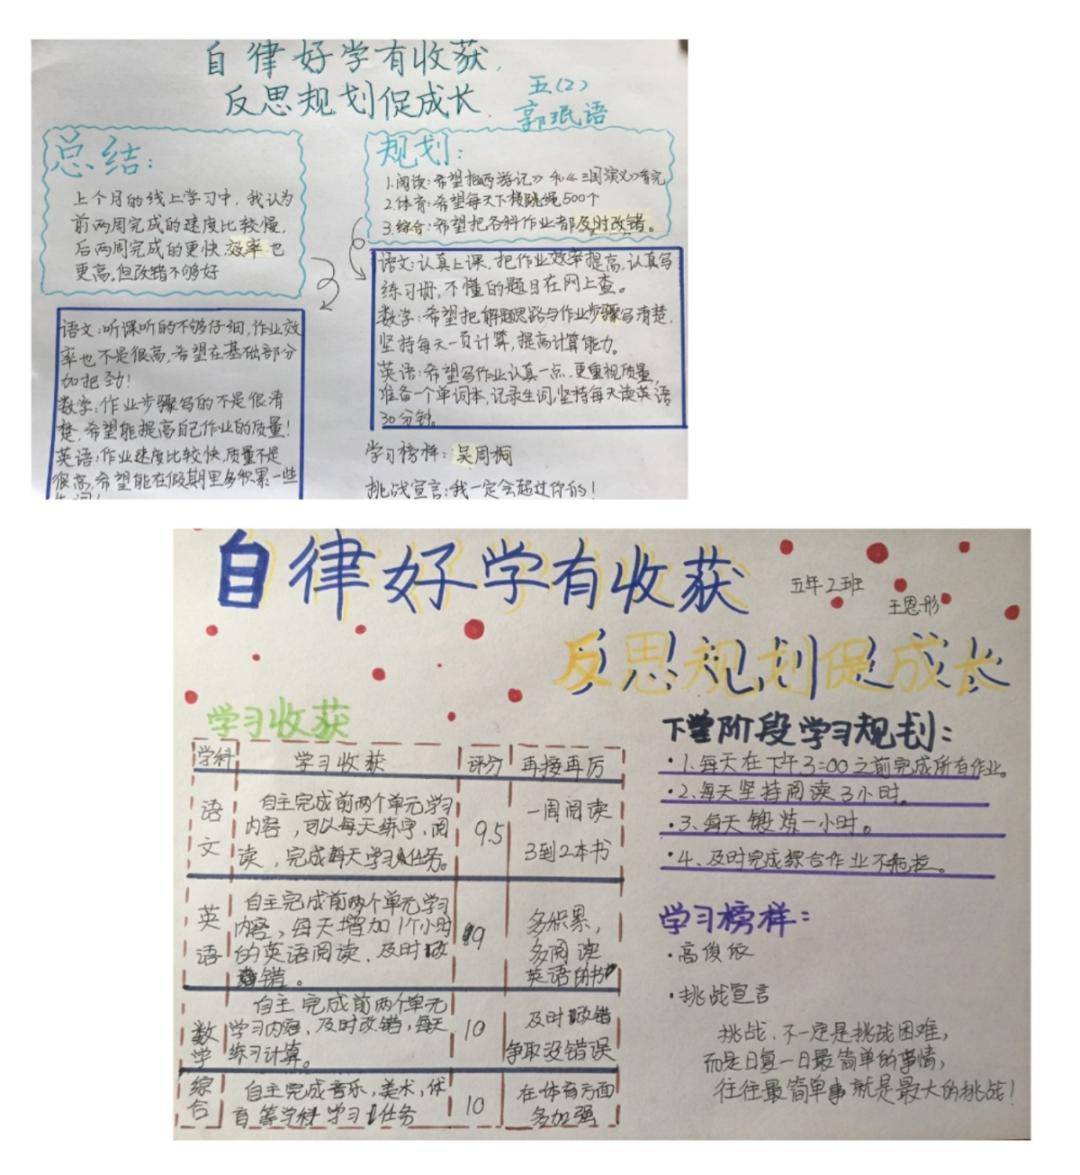 自律好学有收获,
反思规划促成长
五(2)
郭珉语
总结:
上个月的线上学习中,我认为
前两周完成的速度比较慢,
后两周完成的更快,效率也
更高,但改错不够好
规划:
1.阅读:希望把西游记》和《三国演义》看完
2体育:希望每天下楼跳绳500个
3.综合:希望把各科作业都及时改错。
语文:听课听的不够仔细,作业效
率也不是很高,希望在基础部分
加把劲!
数学:作业步骤写的不是很清
楚,希望能提高自己作业的质量!
英语:作业速度比较快,质量不是
很高,希望能在假期里多积累一些
语文:认真上课,把作业效率提高,认真写
练习册,不懂的题目在网上查。
数学:希望把解题思路与作业步骤写清楚.
坚持每天一页计算,提高计算能力。
英语:希望写作业认真一点,更重视质量,
准备一个单词本,记录生词,坚持每天读英语
30分钟。
学习榜样:吴周桐
挑战宣言:我一定会超过你的!
自律好学有收获
五年2班
王恩彤
反思规划促成长
学习收获
学科 学习收获 评分 再接再厉
语文 自主完成前两个单元学习 9.5 一周阅读
内容,可以每天练字,阅
读,完成每天学习任务。 3到2本书
英语 自主完成前两个单元学习 9 多积累,
内容,每天增加1个小时 多阅读
的英语阅读,及时改 英语的书
错。
数学 自主完成前两个单元 10 及时改错
学习内容,及时改错,每天 争取没错误
练习计算。
综合 自主完成音乐,美术,体 10 在体育方面
育等学科学习任务 多加强
下阶段学习规划:
·1.每天在下午3:00之前完成所有作业。
·2.每天坚持阅读3小时。
·3.每天锻炼一小时。
·4.及时完成综合作业不拖拉。
学习榜样:
·高俊依
·挑战宣言
挑战,不一定是挑战困难,
而是日复一日最简单的事情,
往往最简单事就是最大的挑战!